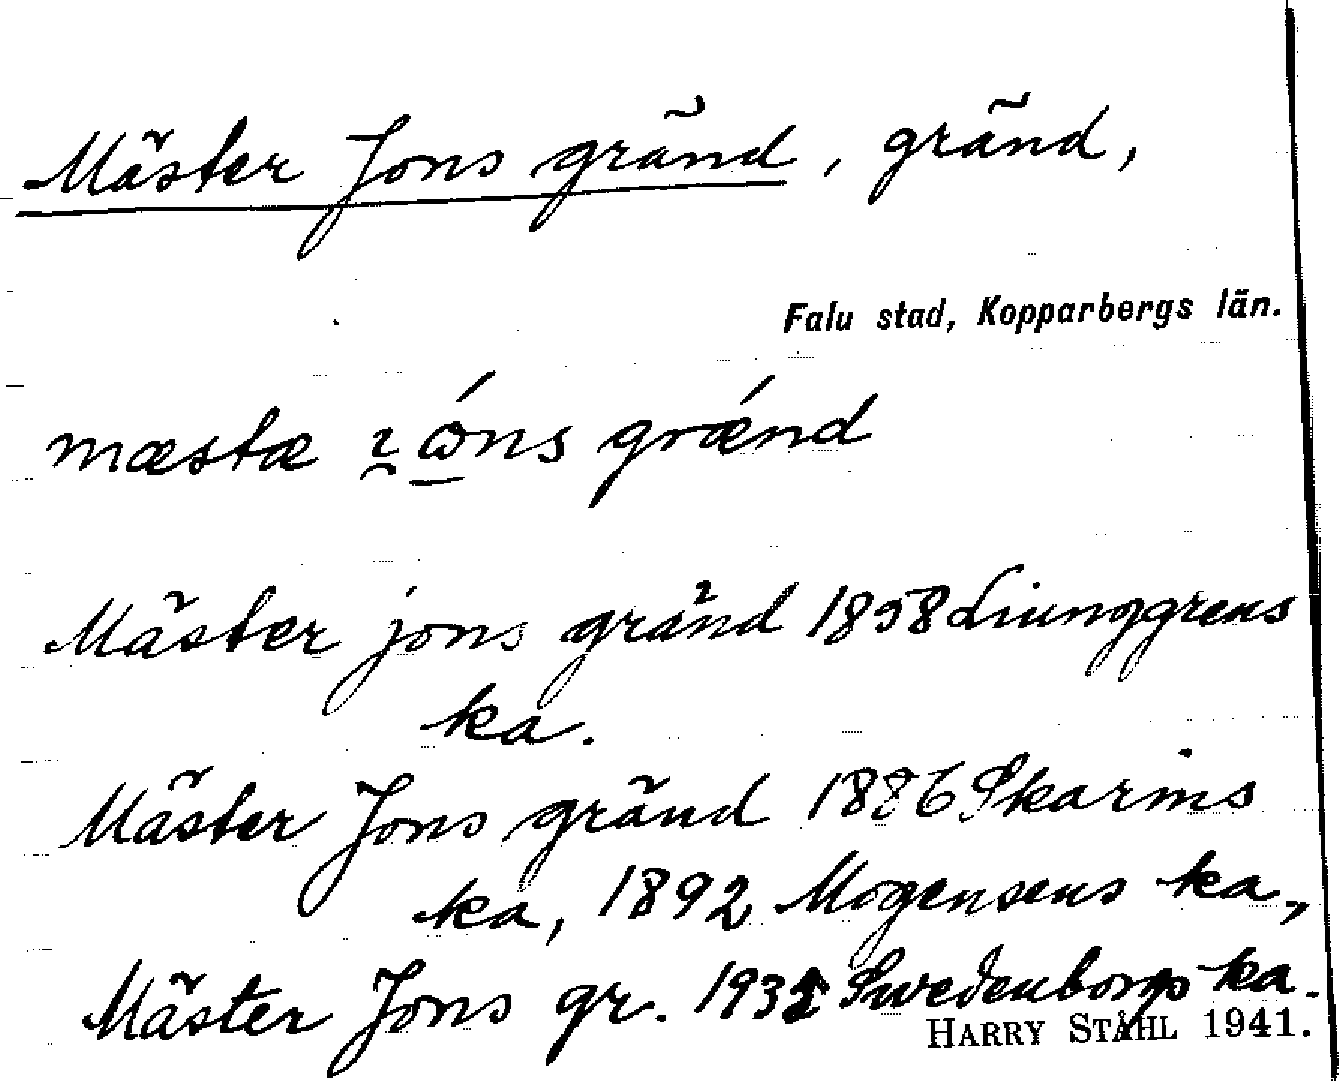 Mäster Jons gränd, gränd,
Falu stad, Kopparbergs län.
mæstæ ɿ ώns grǽnd
Mäster jons gränd 1858 Liunggrens
ka.
Mäster Jons gränd 1886 Skarins
ka, 1892 Mogensens ka,
Mäster Jons gr. Swedenborgs ka.
HARRY STÅHL 1941.